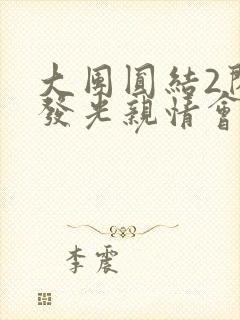 大團圓結2
發光親情會
李震